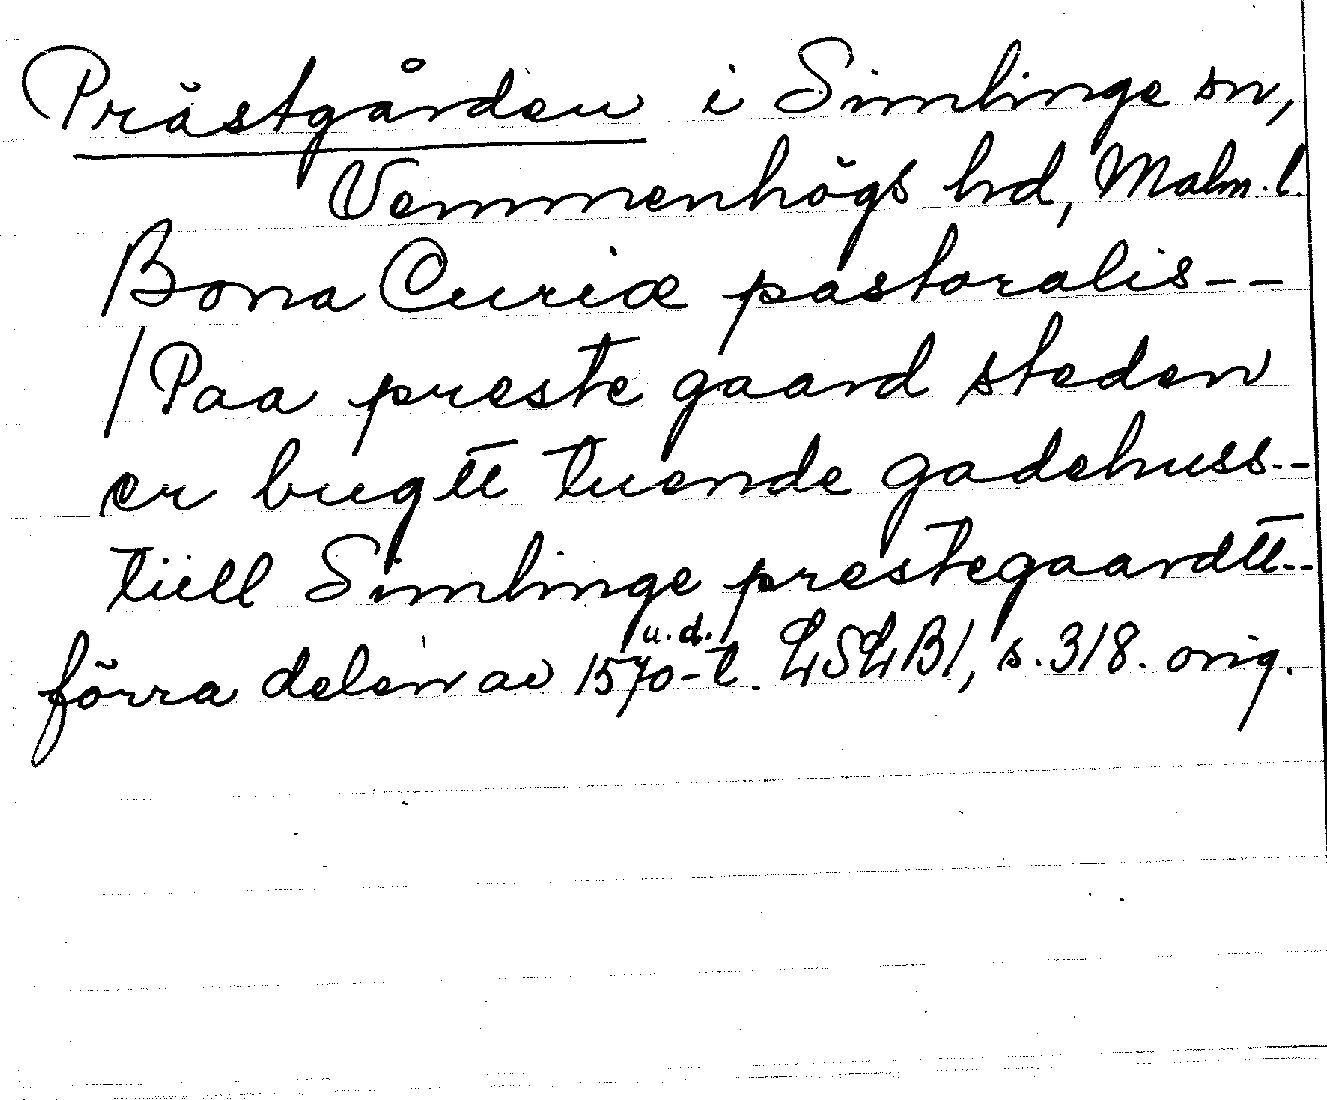 Prästgården i Simlinge sn,
Vemmenhögs hd, Malm. l.
Bona Curiæ pastoralis--
/Paa preste gaard steden
er bugtt tuende gadehuss--
tiill Simlinge prestegaardtt--
u.d.
förra delen av 1570-t. LSLB1, s. 318. orig.